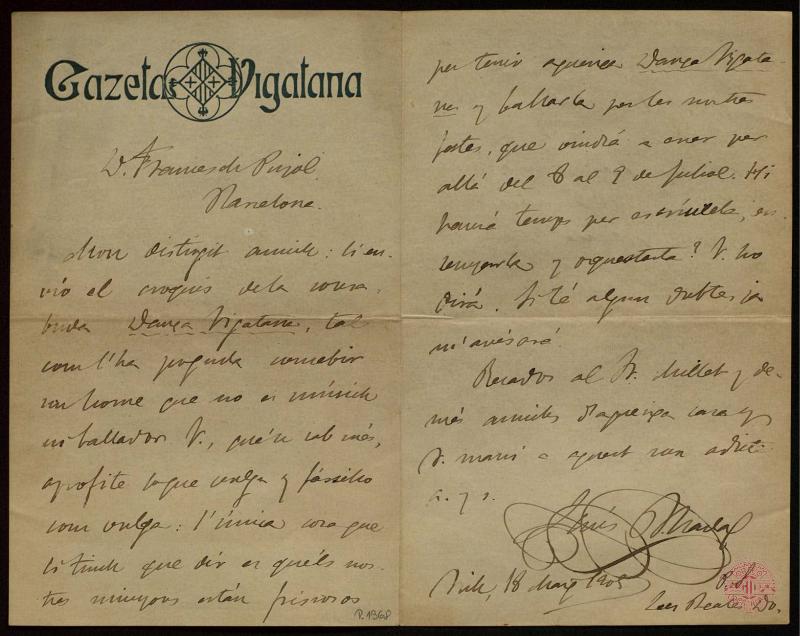 Gazeta Vigatana
D. Francesch Pujol.
Barcelona.
Mon distingit amich: li en-
vío el croquis dela consa-
buda Dança Vigatana, tal
com l'ha poguda concebir
un home que no es músich
ni ballador. V., qué'n sab més,
aprofite loque vulga y fássiho
com vulga: l'única cosa que
li tinch que dir es quéls nos-
tres minyons están frisosos
P. 1368
per tenir aqueixa Dança Vigata-
na y ballarla per les nostres
festes, que vindrá a esser per
allá del 8 al 9 de Juliol. Hi
haurá temps per escriurela, en-
senyarla y orquestarla? V. ho
dirá. Si té algun dubte ja
m'avisará.
Recados al Sr. Millet y de-
més amichs d'aqueixa casa y
V. mani a aquest son adicte
a. y s.
Lluís B. Nadal
Vich, 18 Març 1905